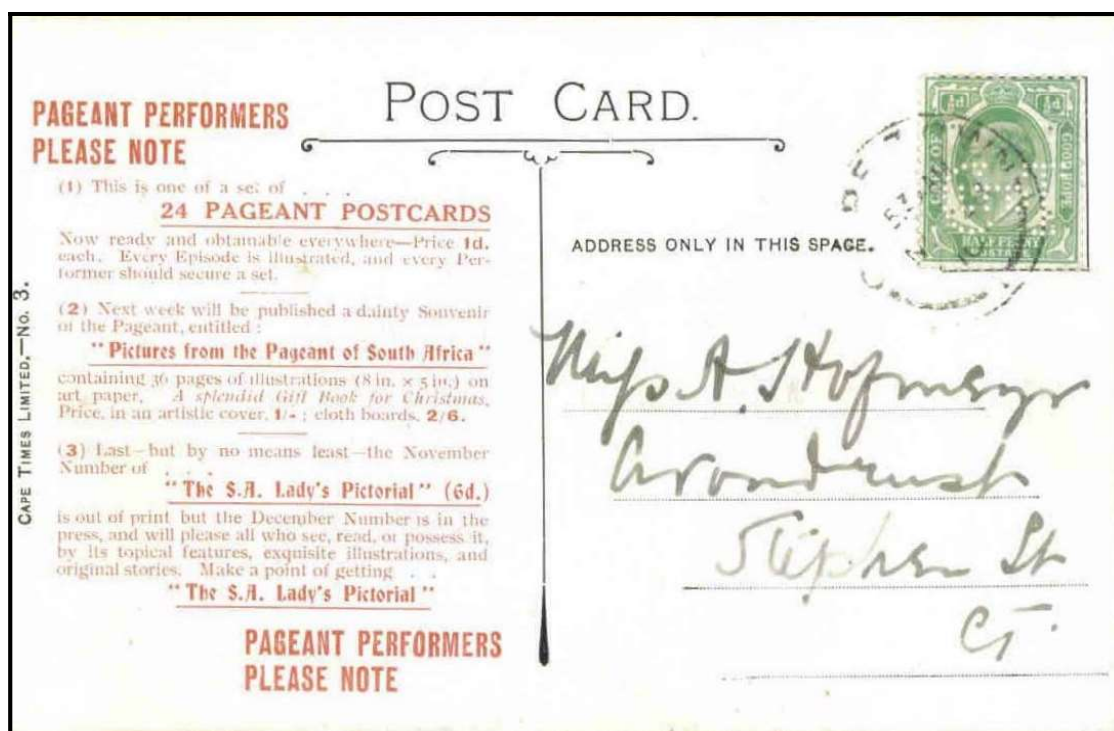 POST CARD.
PAGEANT PERFORMERS
PLEASE NOTE
(1) This is one of a set of . . . .
24 PAGEANT POSTCARDS
Now ready and obtainable everywhere—Price 1d.
each. Every Episode is illustrated, and every Per-
former should secure a set.
(2) Next week will be published a dainty Souvenir
of the Pageant, entitled :
"Pictures from the Pageant of South Africa"
containing 36 pages of illustrations (8 in. × 5 in.) on
art paper. A splendid Gift Book for Christmas.
Price, in an artistic cover, 1/- ; cloth boards, 2/6.
(3) Last—but by no means least—the November
Number of . . . .
"The S.A. Lady's Pictorial" (6d.)
is out of print but the December Number is in the
press, and will please all who see, read, or possess it,
by its topical features, exquisite illustrations, and
original stories. Make a point of getting . .
"The S.A. Lady's Pictorial"
PAGEANT PERFORMERS
PLEASE NOTE
CAPE TIMES LIMITED.—No. 3.
ADDRESS ONLY IN THIS SPACE.
½d ½d
CAPE OF GOOD HOPE
HALF PENNY
POSTAGE
Miss A. Hofmeyr
Avondrust
Stephen St
CT.